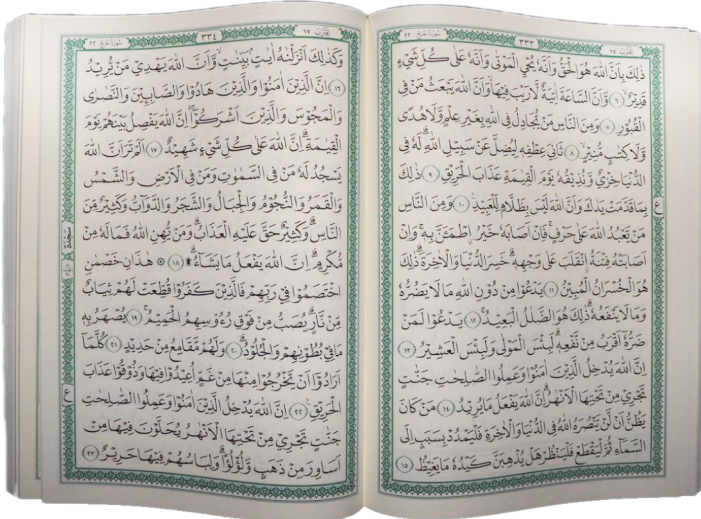 اِقْتَرَبَ ١٧ ٣٣٣ سُورَةُ الْحَجِّ ٢٢
ذٰلِكَ بِاَنَّ اللهَ هُوَ الْحَقُّ وَاَنَّهٗ يُحْيِ الْمَوْتٰى وَاَنَّهٗ عَلٰى كُلِّ شَيْءٍ
قَدِيْرٌ ٦ وَّاَنَّ السَّاعَةَ اٰتِيَةٌ لَّا رَيْبَ فِيْهَا وَاَنَّ اللهَ يَبْعَثُ مَنْ فِى
الْقُبُوْرِ ٧ وَمِنَ النَّاسِ مَنْ يُّجَادِلُ فِى اللهِ بِغَيْرِ عِلْمٍ وَّلَا هُدًى
وَّلَا كِتٰبٍ مُّنِيْرٍ ٨ ثَانِيَ عِطْفِهٖ لِيُضِلَّ عَنْ سَبِيْلِ اللهِ لَهٗ فِى
الدُّنْيَا خِزْيٌ وَّنُذِيْقُهٗ يَوْمَ الْقِيٰمَةِ عَذَابَ الْحَرِيْقِ ٩ ذٰلِكَ
بِمَا قَدَّمَتْ يَدٰكَ وَاَنَّ اللهَ لَيْسَ بِظَلَّامٍ لِّلْعَبِيْدِ ١٠ وَمِنَ النَّاسِ
مَنْ يَّعْبُدُ اللهَ عَلٰى حَرْفٍ فَاِنْ اَصَابَهٗ خَيْرُ ۨاطْمَاَنَّ بِهٖ وَاِنْ
اَصَابَتْهُ فِتْنَةُ ۨانْقَلَبَ عَلٰى وَجْهِهٖ خَسِرَ الدُّنْيَا وَالْاٰخِرَةَ ذٰلِكَ
هُوَ الْخُسْرَانُ الْمُبِيْنُ ١١ يَدْعُوْا مِنْ دُوْنِ اللهِ مَا لَا يَضُرُّهٗ
وَمَا لَا يَنْفَعُهٗ ذٰلِكَ هُوَ الضَّلٰلُ الْبَعِيْدُ ١٢ يَدْعُوْا لَمَنْ
ضَرُّهٗٓ اَقْرَبُ مِنْ نَّفْعِهٖ لَبِئْسَ الْمَوْلٰى وَلَبِئْسَ الْعَشِيْرُ ١٣
اِنَّ اللهَ يُدْخِلُ الَّذِيْنَ اٰمَنُوْا وَعَمِلُوا الصّٰلِحٰتِ جَنّٰتٍ
تَجْرِيْ مِنْ تَحْتِهَا الْاَنْهٰرُ اِنَّ اللهَ يَفْعَلُ مَا يُرِيْدُ ١٤ مَنْ كَانَ
يَظُنُّ اَنْ لَّنْ يَّنْصُرَهُ اللهُ فِى الدُّنْيَا وَالْاٰخِرَةِ فَلْيَمْدُدْ بِسَبَبٍ اِلَى
السَّمَآءِ ثُمَّ لْيَقْطَعْ فَلْيَنْظُرْ هَلْ يُذْهِبَنَّ كَيْدُهٗ مَا يَغِيْظُ ١٥
ع
اِقْتَرَبَ ١٧ ٣٣٤ سُورَةُ الْحَجِّ ٢٢
وَكَذٰلِكَ اَنْزَلْنٰهُ اٰيٰتٍ بَيِّنٰتٍ وَّاَنَّ اللهَ يَهْدِيْ مَنْ يُّرِيْدُ
١٦ اِنَّ الَّذِيْنَ اٰمَنُوْا وَالَّذِيْنَ هَادُوْا وَالصّٰبِــِٕيْنَ وَالنَّصٰرٰى
وَالْمَجُوْسَ وَالَّذِيْنَ اَشْرَكُوْٓا اِنَّ اللهَ يَفْصِلُ بَيْنَهُمْ يَوْمَ
الْقِيٰمَةِ اِنَّ اللهَ عَلٰى كُلِّ شَيْءٍ شَهِيْدٌ ١٧ اَلَمْ تَرَ اَنَّ اللهَ
يَسْجُدُ لَهٗ مَنْ فِى السَّمٰوٰتِ وَمَنْ فِى الْاَرْضِ وَالشَّمْسُ
وَالْقَمَرُ وَالنُّجُوْمُ وَالْجِبَالُ وَالشَّجَرُ وَالدَّوَآبُّ وَكَثِيْرٌ مِّنَ
النَّاسِ وَكَثِيْرٌ حَقَّ عَلَيْهِ الْعَذَابُ وَمَنْ يُّهِنِ اللهُ فَمَا لَهٗ مِنْ
مُّكْرِمٍ اِنَّ اللهَ يَفْعَلُ مَا يَشَآءُ ١٨ هٰذٰنِ خَصْمٰنِ
اخْتَصَمُوْا فِيْ رَبِّهِمْ فَالَّذِيْنَ كَفَرُوْا قُطِّعَتْ لَهُمْ ثِيَابٌ
مِّنْ نَّارٍ يُصَبُّ مِنْ فَوْقِ رُءُوْسِهِمُ الْحَمِيْمُ ١٩ يُصْهَرُ بِهٖ
مَا فِيْ بُطُوْنِهِمْ وَالْجُلُوْدُ ٢٠ وَلَهُمْ مَّقَامِعُ مِنْ حَدِيْدٍ ٢١ كُلَّمَآ
اَرَادُوْٓا اَنْ يَّخْرُجُوْا مِنْهَا مِنْ غَمٍّ اُعِيْدُوْا فِيْهَا وَذُوْقُوْا عَذَابَ
الْحَرِيْقِ ٢٢ اِنَّ اللهَ يُدْخِلُ الَّذِيْنَ اٰمَنُوْا وَعَمِلُوا الصّٰلِحٰتِ
جَنّٰتٍ تَجْرِيْ مِنْ تَحْتِهَا الْاَنْهٰرُ يُحَلَّوْنَ فِيْهَا مِنْ
اَسَاوِرَ مِنْ ذَهَبٍ وَّلُؤْلُؤًا وَلِبَاسُهُمْ فِيْهَا حَرِيْرٌ ٢٣
ع